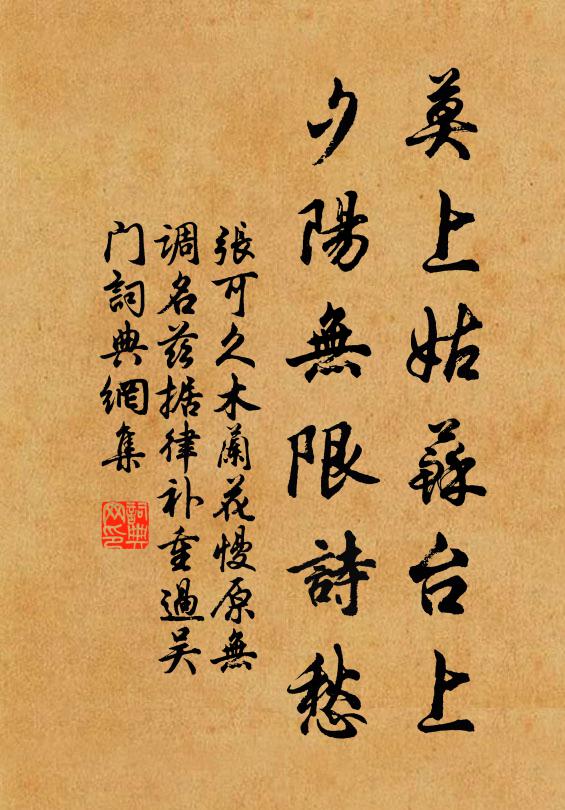 莫上姑蘇台上
夕陽無限詩愁
張可久木蘭花慢原無
调名茲据律补重過吴
门詞典網集
詞典
网印